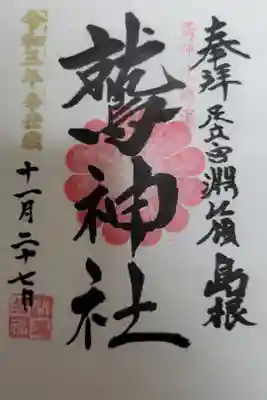 奉拝 足立 淵領 島根
鷲神社
令和三年辛丑歳
十一月二十七日